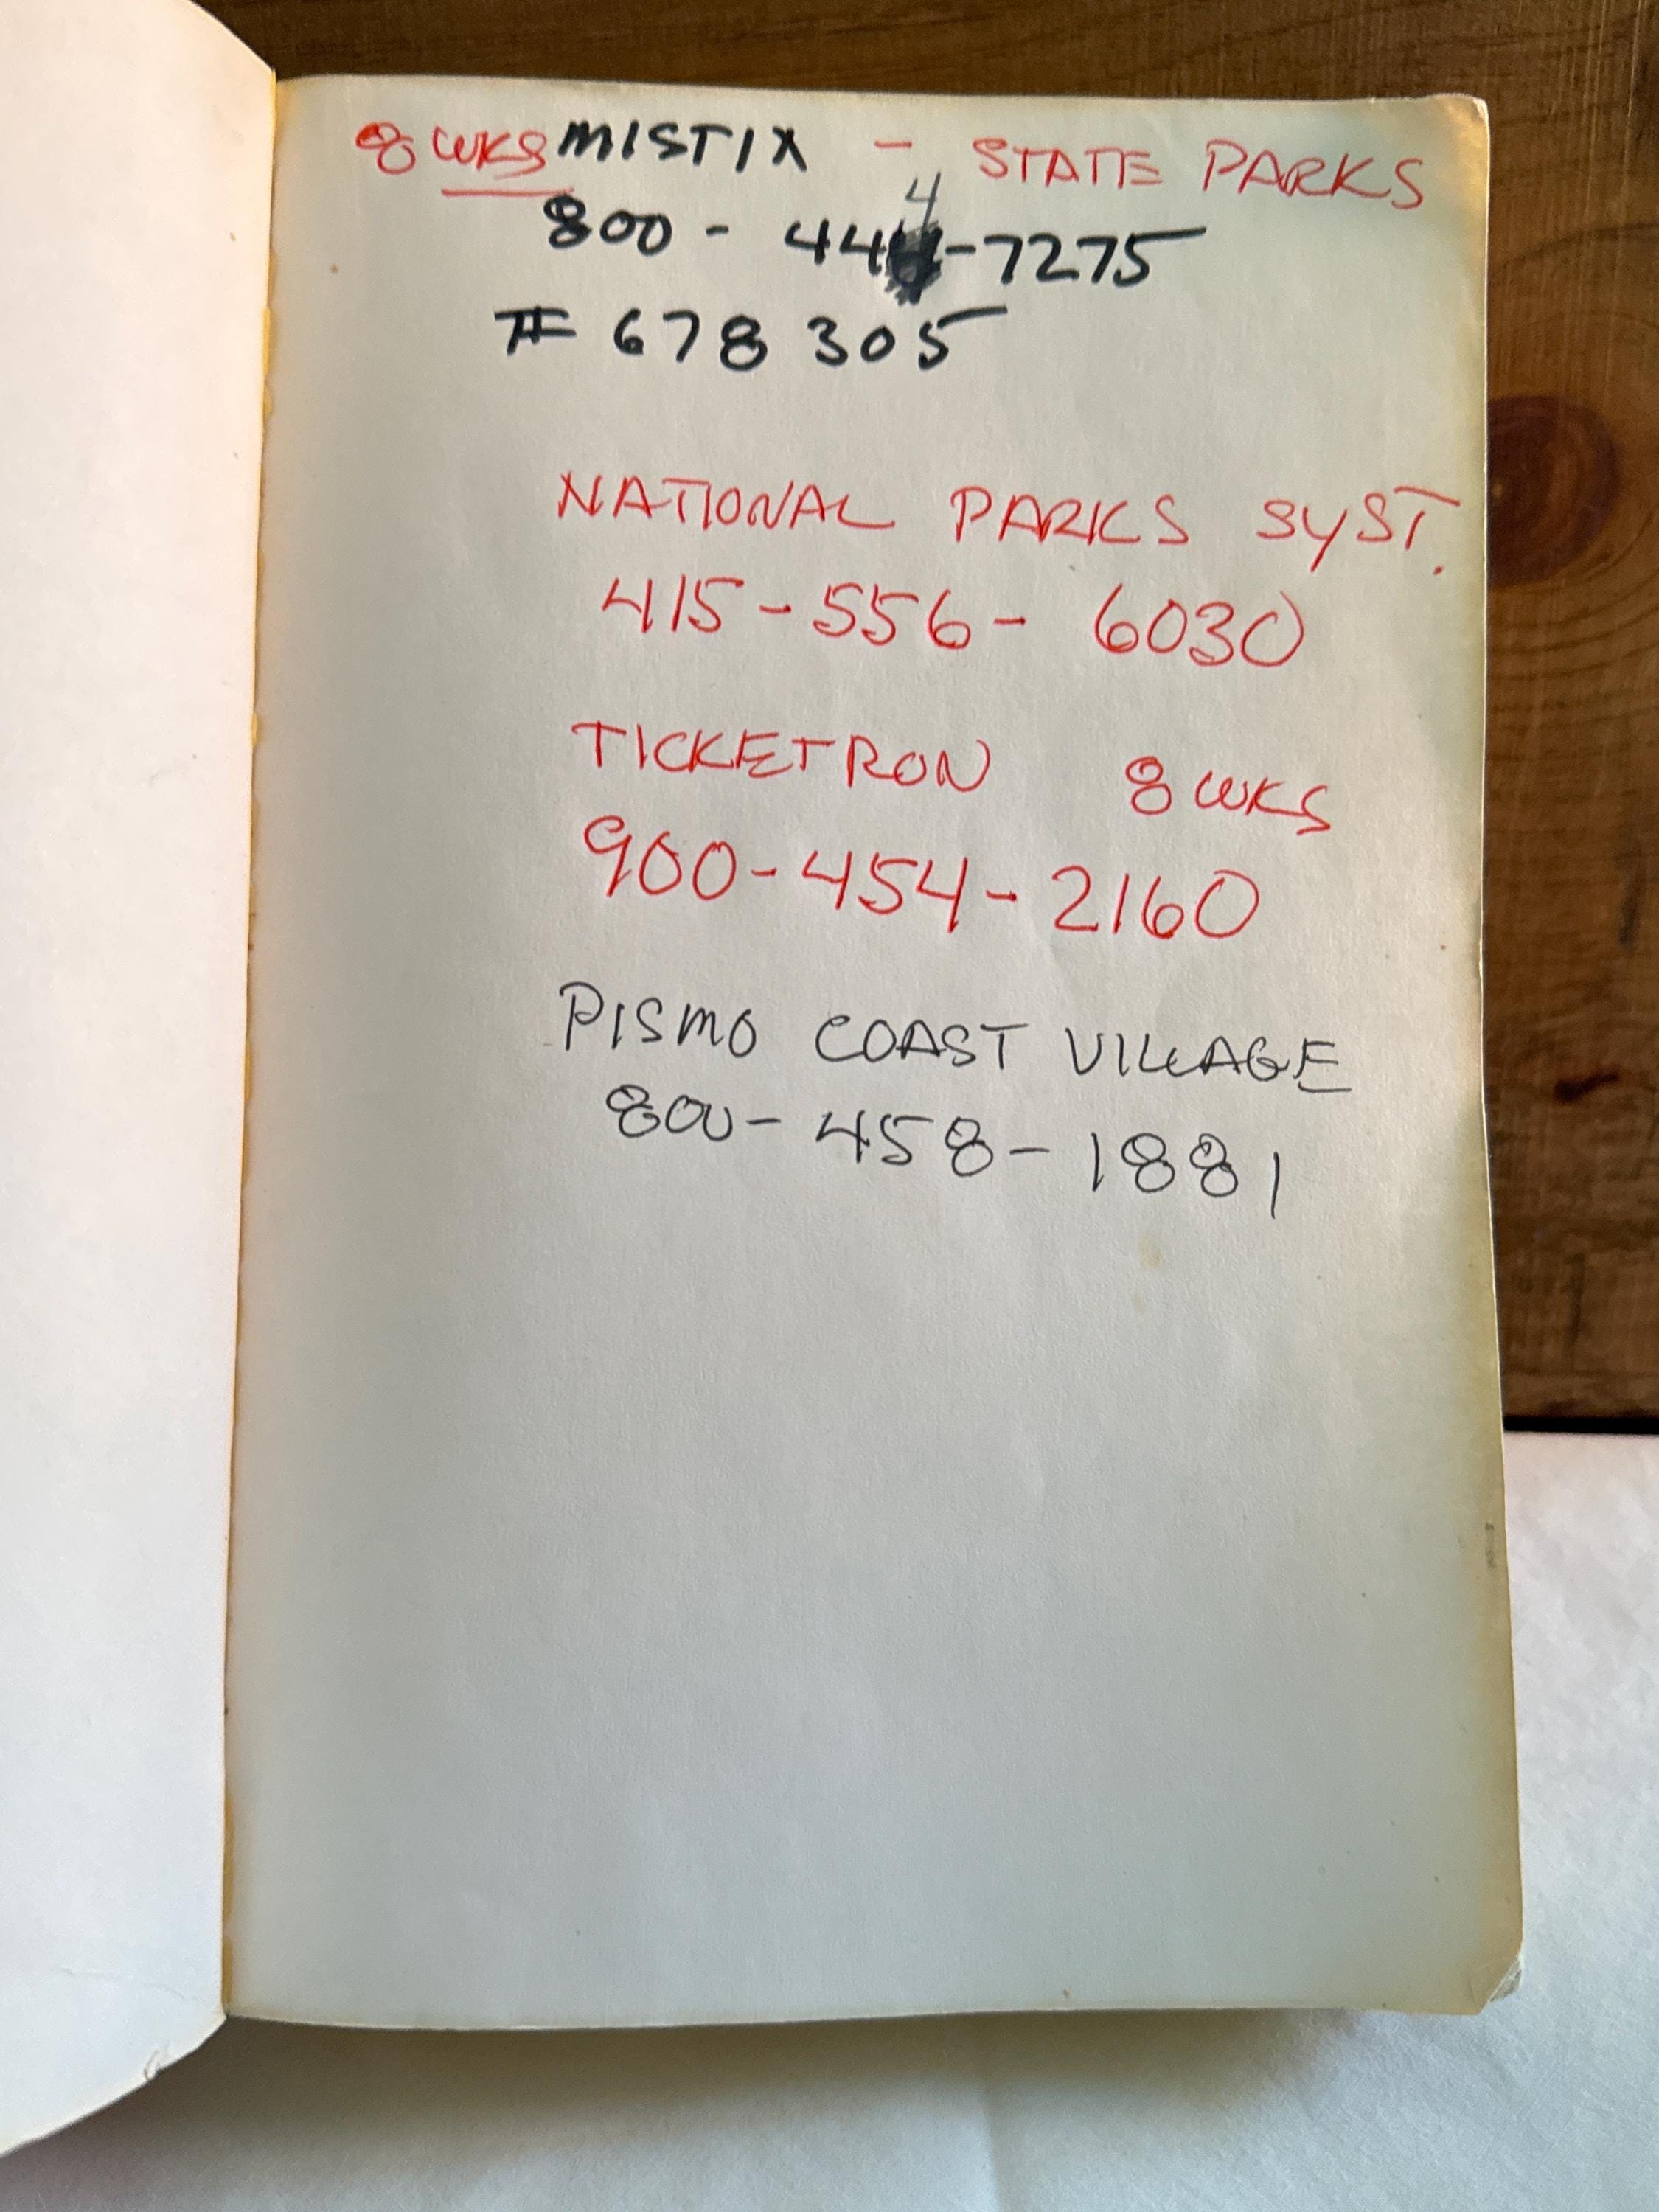 8 WKS MISTIX - STATE PARKS
800 - 444-7275
# 678 305
NATIONAL PARKS SYST.
415-556-6030
TICKETRON 8 WKS
900-454-2160
PISMO COAST VILLAGE
800-458-1881